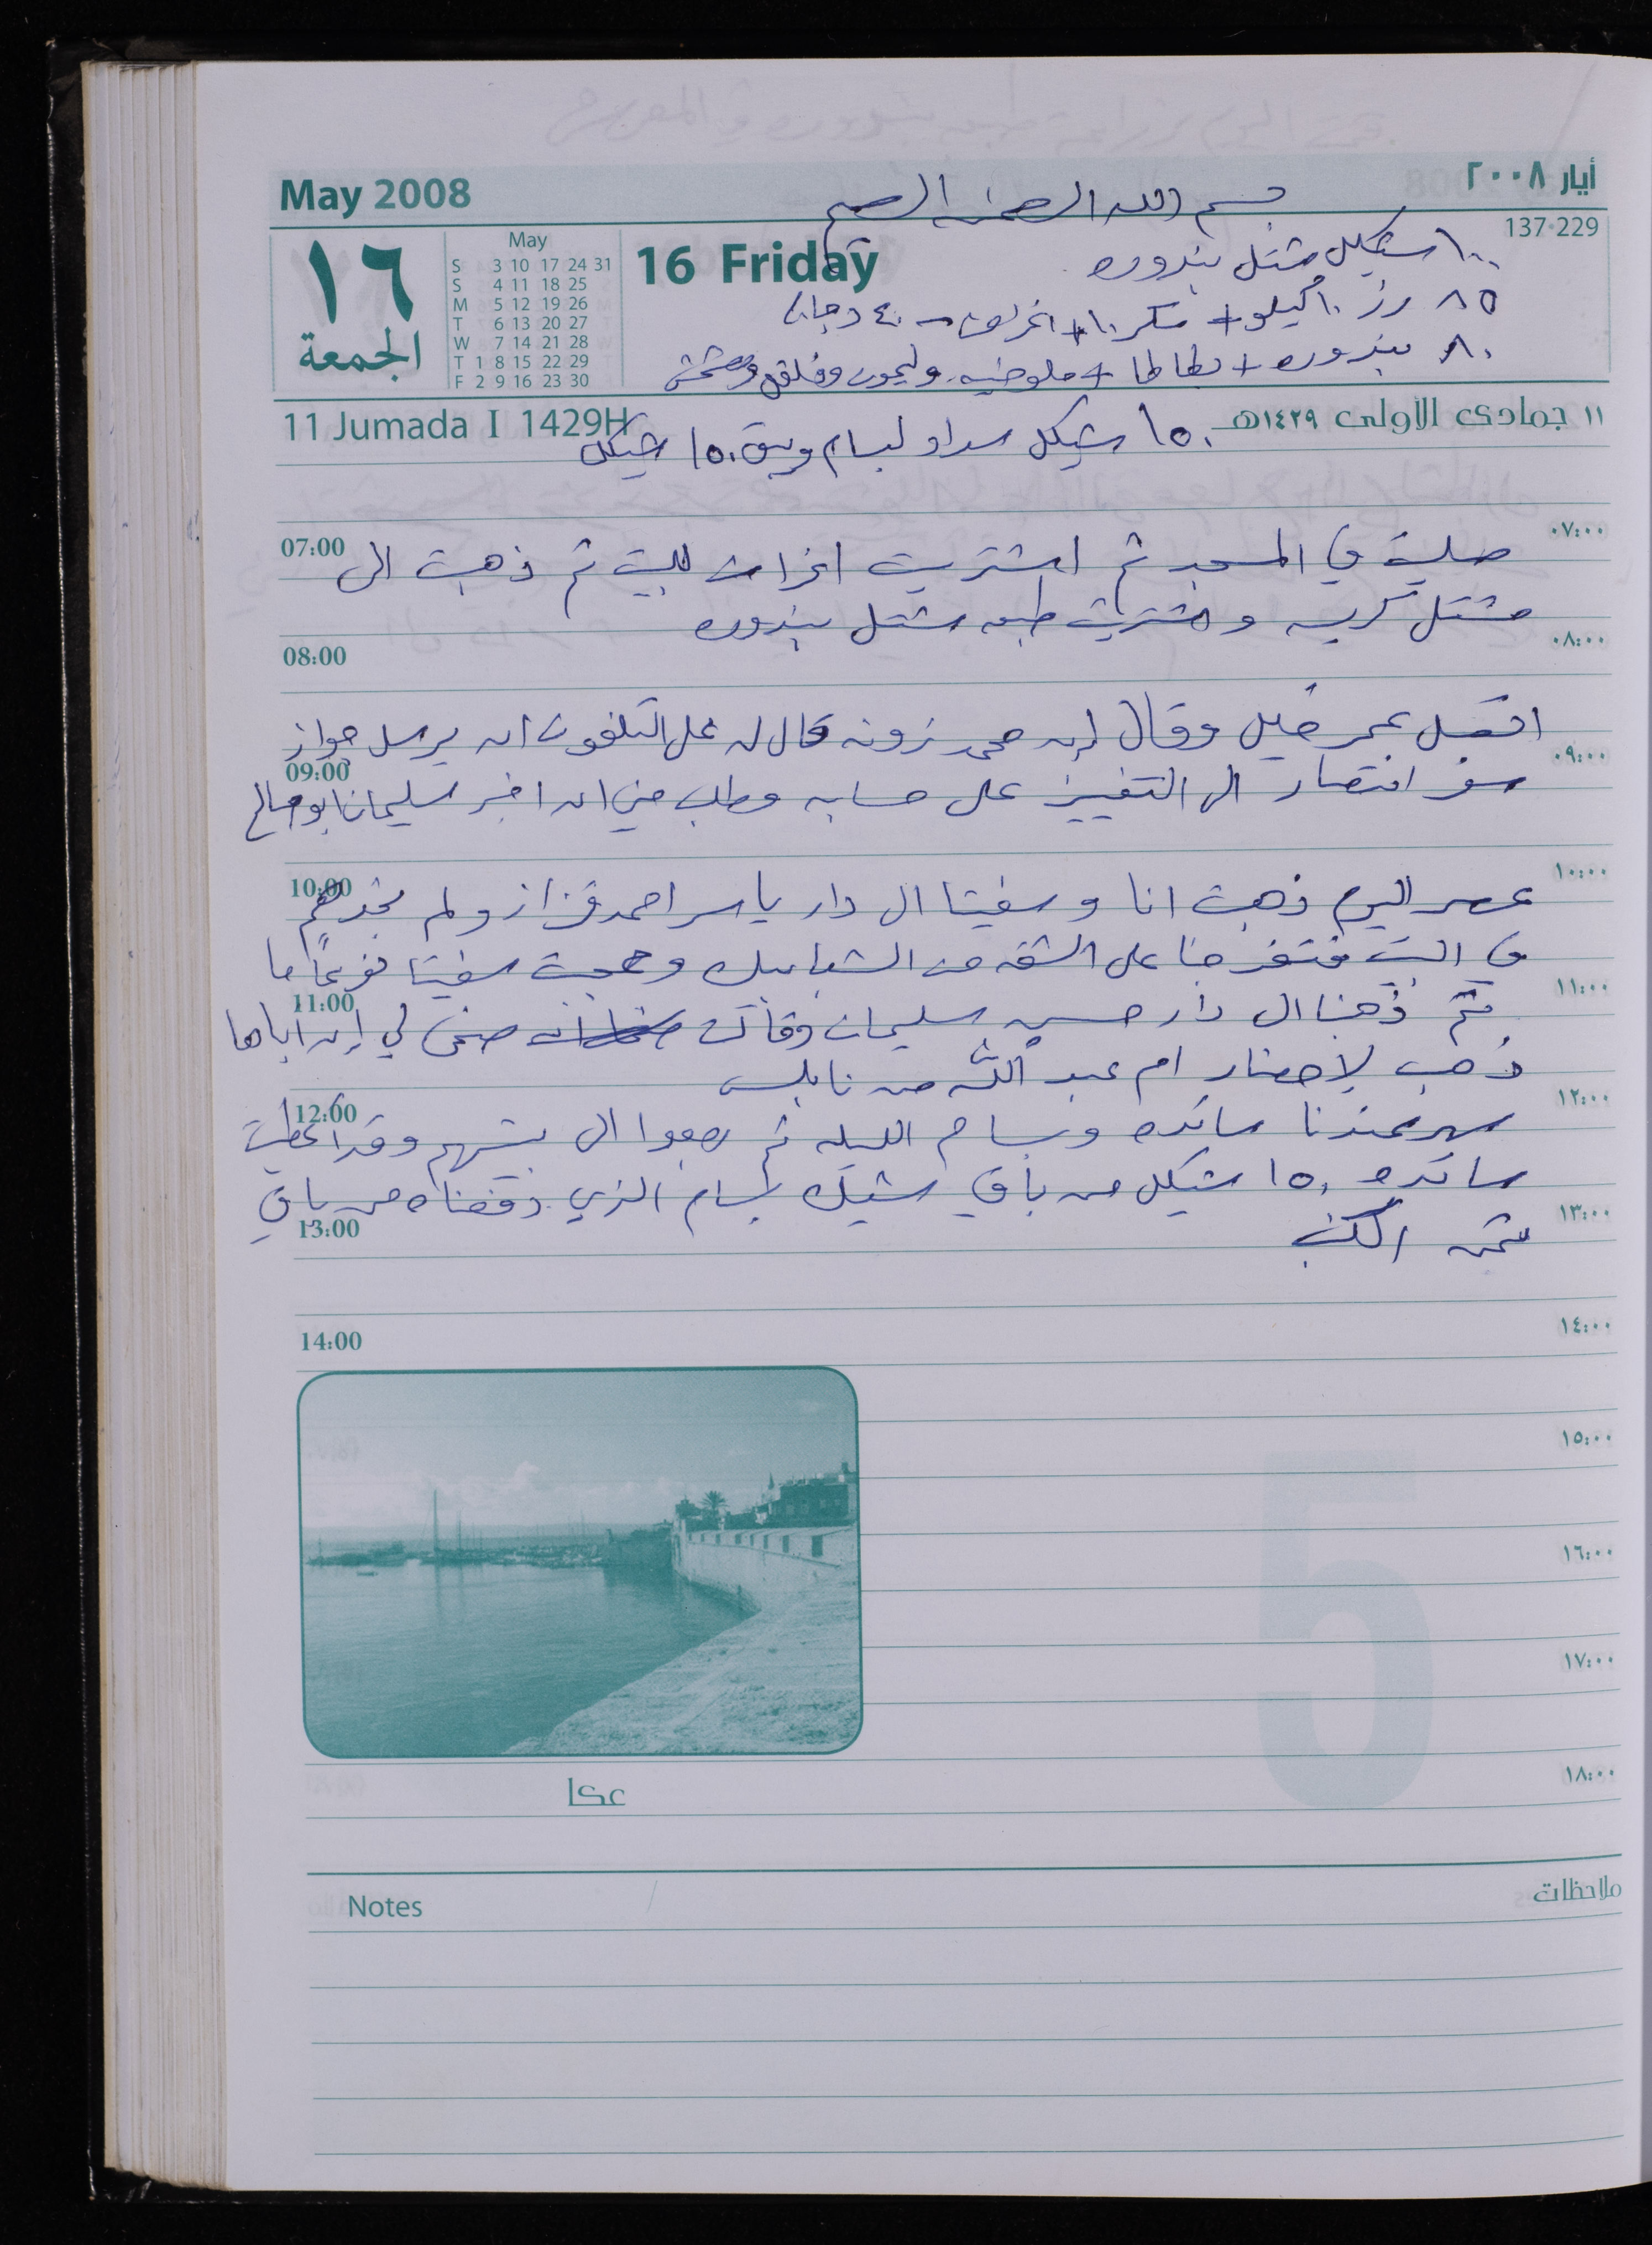 May 2008
أيار ٢٠٠٨
بسم الله الرحمن الرحيم
137-229
١٦
الجمعة
May
S 3 10 17 24 31
S 4 11 18 25
M 5 12 19 26
T 6 13 20 27
W 7 14 21 28
T 1 8 15 22 29
F 2 9 16 23 30
16 Friday
١٠٠ شيكل شتل بندوره
٨٥ رز ١٠ كيلو + سكر ١٠ +
٨٠ بندوره + بطاطا + ملوخيه وليمون وفلفل ومشمش
11 Jumada I 1429H
١١ جمادى الأولى ١٤٢٩هـ
١٥٠ شيكل سداد لبسام وبقي ١٥٠ شيكل
07:00
٠٧:٠٠
صليت في المسجد ثم اشتريت اغراض للبيت ثم ذهبت الى
مشتل واشتريت طبعه شتل بندوره
08:00
٠٨:٠٠
اتصل عمر خليل وقال إن محمد قال له على التلفون ان يرسل جواز
09:00
٠٩:٠٠
سفر انتصار الى على حسابه وطلب مني ان اخبر سليمان ابو صالح
10:00
١٠:٠٠
عصر اليوم ذهبت انا وسفيتا الى دار ياسر احمد قزاز ولم نجدهم
في البيت فتفرجنا على الشقه من الشبابيك وعجبت سفيتا نوعاً ما
11:00
١١:٠٠
ثم ذهبنا الى دار حسن سليمان وقالت ضحى لي إن اباها
ذهب لاحضار ام عبد الله من نابلس
12:00
١٢:٠٠
سهر عندنا سائده وبسام الليله ثم رجعوا الى بيتهم وقد اعطيت
سائده ١٥٠ شيكل من باقي شيك بسام الذي دفعناه من باقي
13:00
١٣:٠٠
ثمن الكنب
14:00
١٤:٠٠
١٥:٠٠
١٦:٠٠
١٧:٠٠
١٨:٠٠
5
عكا
Notes
ملاحظات